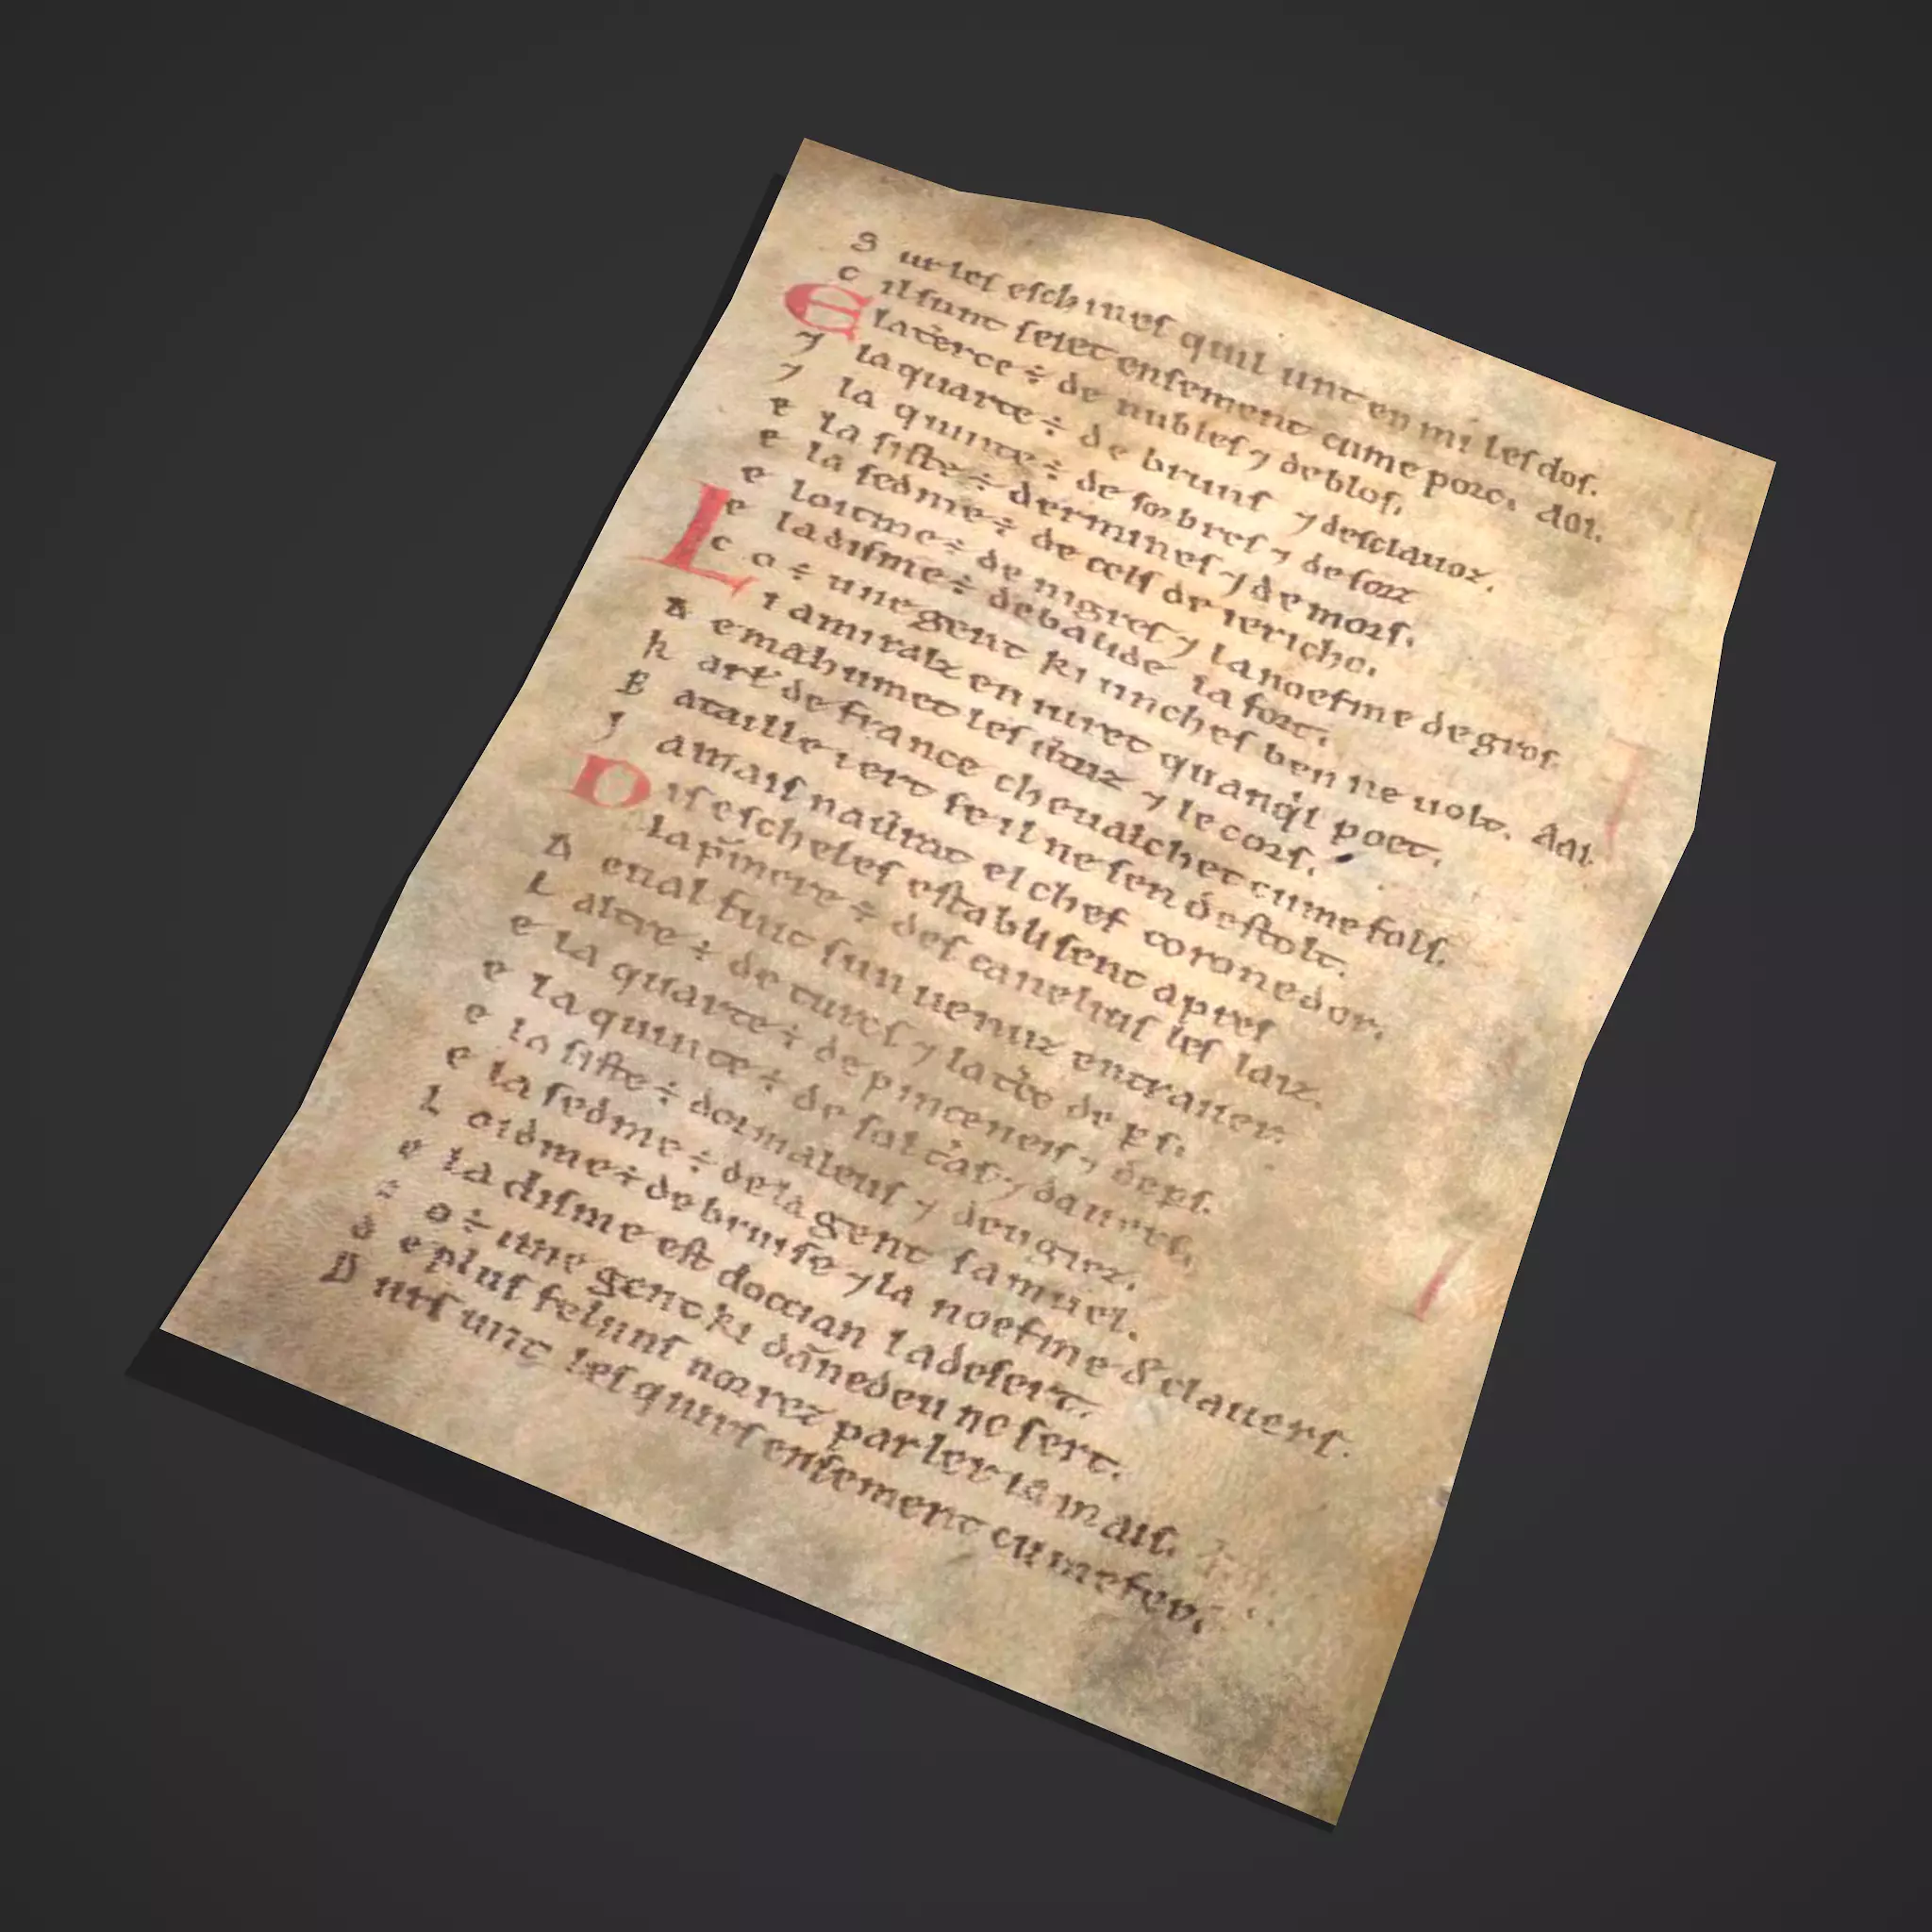 Sur leſ eſchineſ quil unt en mi leſ doſ.
cil ſunt ſeiet enſement cume porc. aoi.
E la terce ÷ de nubleſ ⁊ de bloſ.
⁊ la quarte ÷ de brunſ ⁊ deſclauoz.
⁊ la quinte ÷ de ſorbreſ ⁊ de ſorz
e la ſiſte ÷ dermineſ ⁊ de morſ.
e la ſedme ÷ de celſ de iericho.
e loitme ÷ de nigreſ ⁊ la noefme de groſ.
e la diſme ÷ de balide la fort.
co ÷ une gent ki uncheſ ben ne uolt. aoi.
Li amiralz en iuret quanq̇l poet.
de mahumet leſ ⁊ le corſ.
karł de france cheualchet cume folſ.
Bataille iert ſe il ne ſen deſtolt.
Jamaiſ naurat el chef corone dor.
Diſ eſcheleſ eſtabliſent apreſ
la p̃mere ÷ deſ caneliuſ leſ laiz.
De ual fuit ſun uenuz en trauer.
Laltre ÷ de turcſ ⁊ la t̃ce de pſ.
e la quarte ÷ de pinceneiſ ⁊ de pſ.
e la quinte ÷ de ſolt̃aſ ⁊ dauerſ.
e la ſiſte ÷ dormaleuſ ⁊ deugiez.
e la ſedme ÷ de la gent ſamuel.
Loidme ÷ de bruiſe ⁊ la noefme & clauerſ.
e la diſme eſt doccian la deſert.
co ÷ une gent ki dãnedeu ne ſert.
de pluſ felunſ norrez parler iamaiſ.
Durſ unt leſ quirſ enſement cume fer.